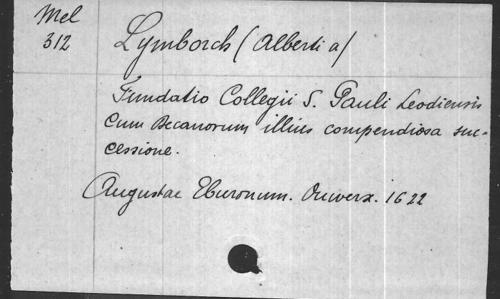 Mel
312
Lymborch (Alberti a)
Fundatio Collegii S. Pauli Leodiensis
cum Decanorum illius compendiosa suc-
cessione.
Augustae Eburonum. Ouwerx. 1622